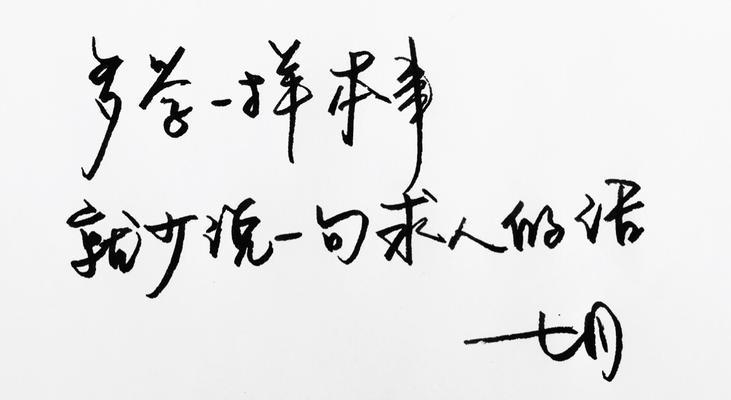 多学一样本事
就少说一句求人的话
七月